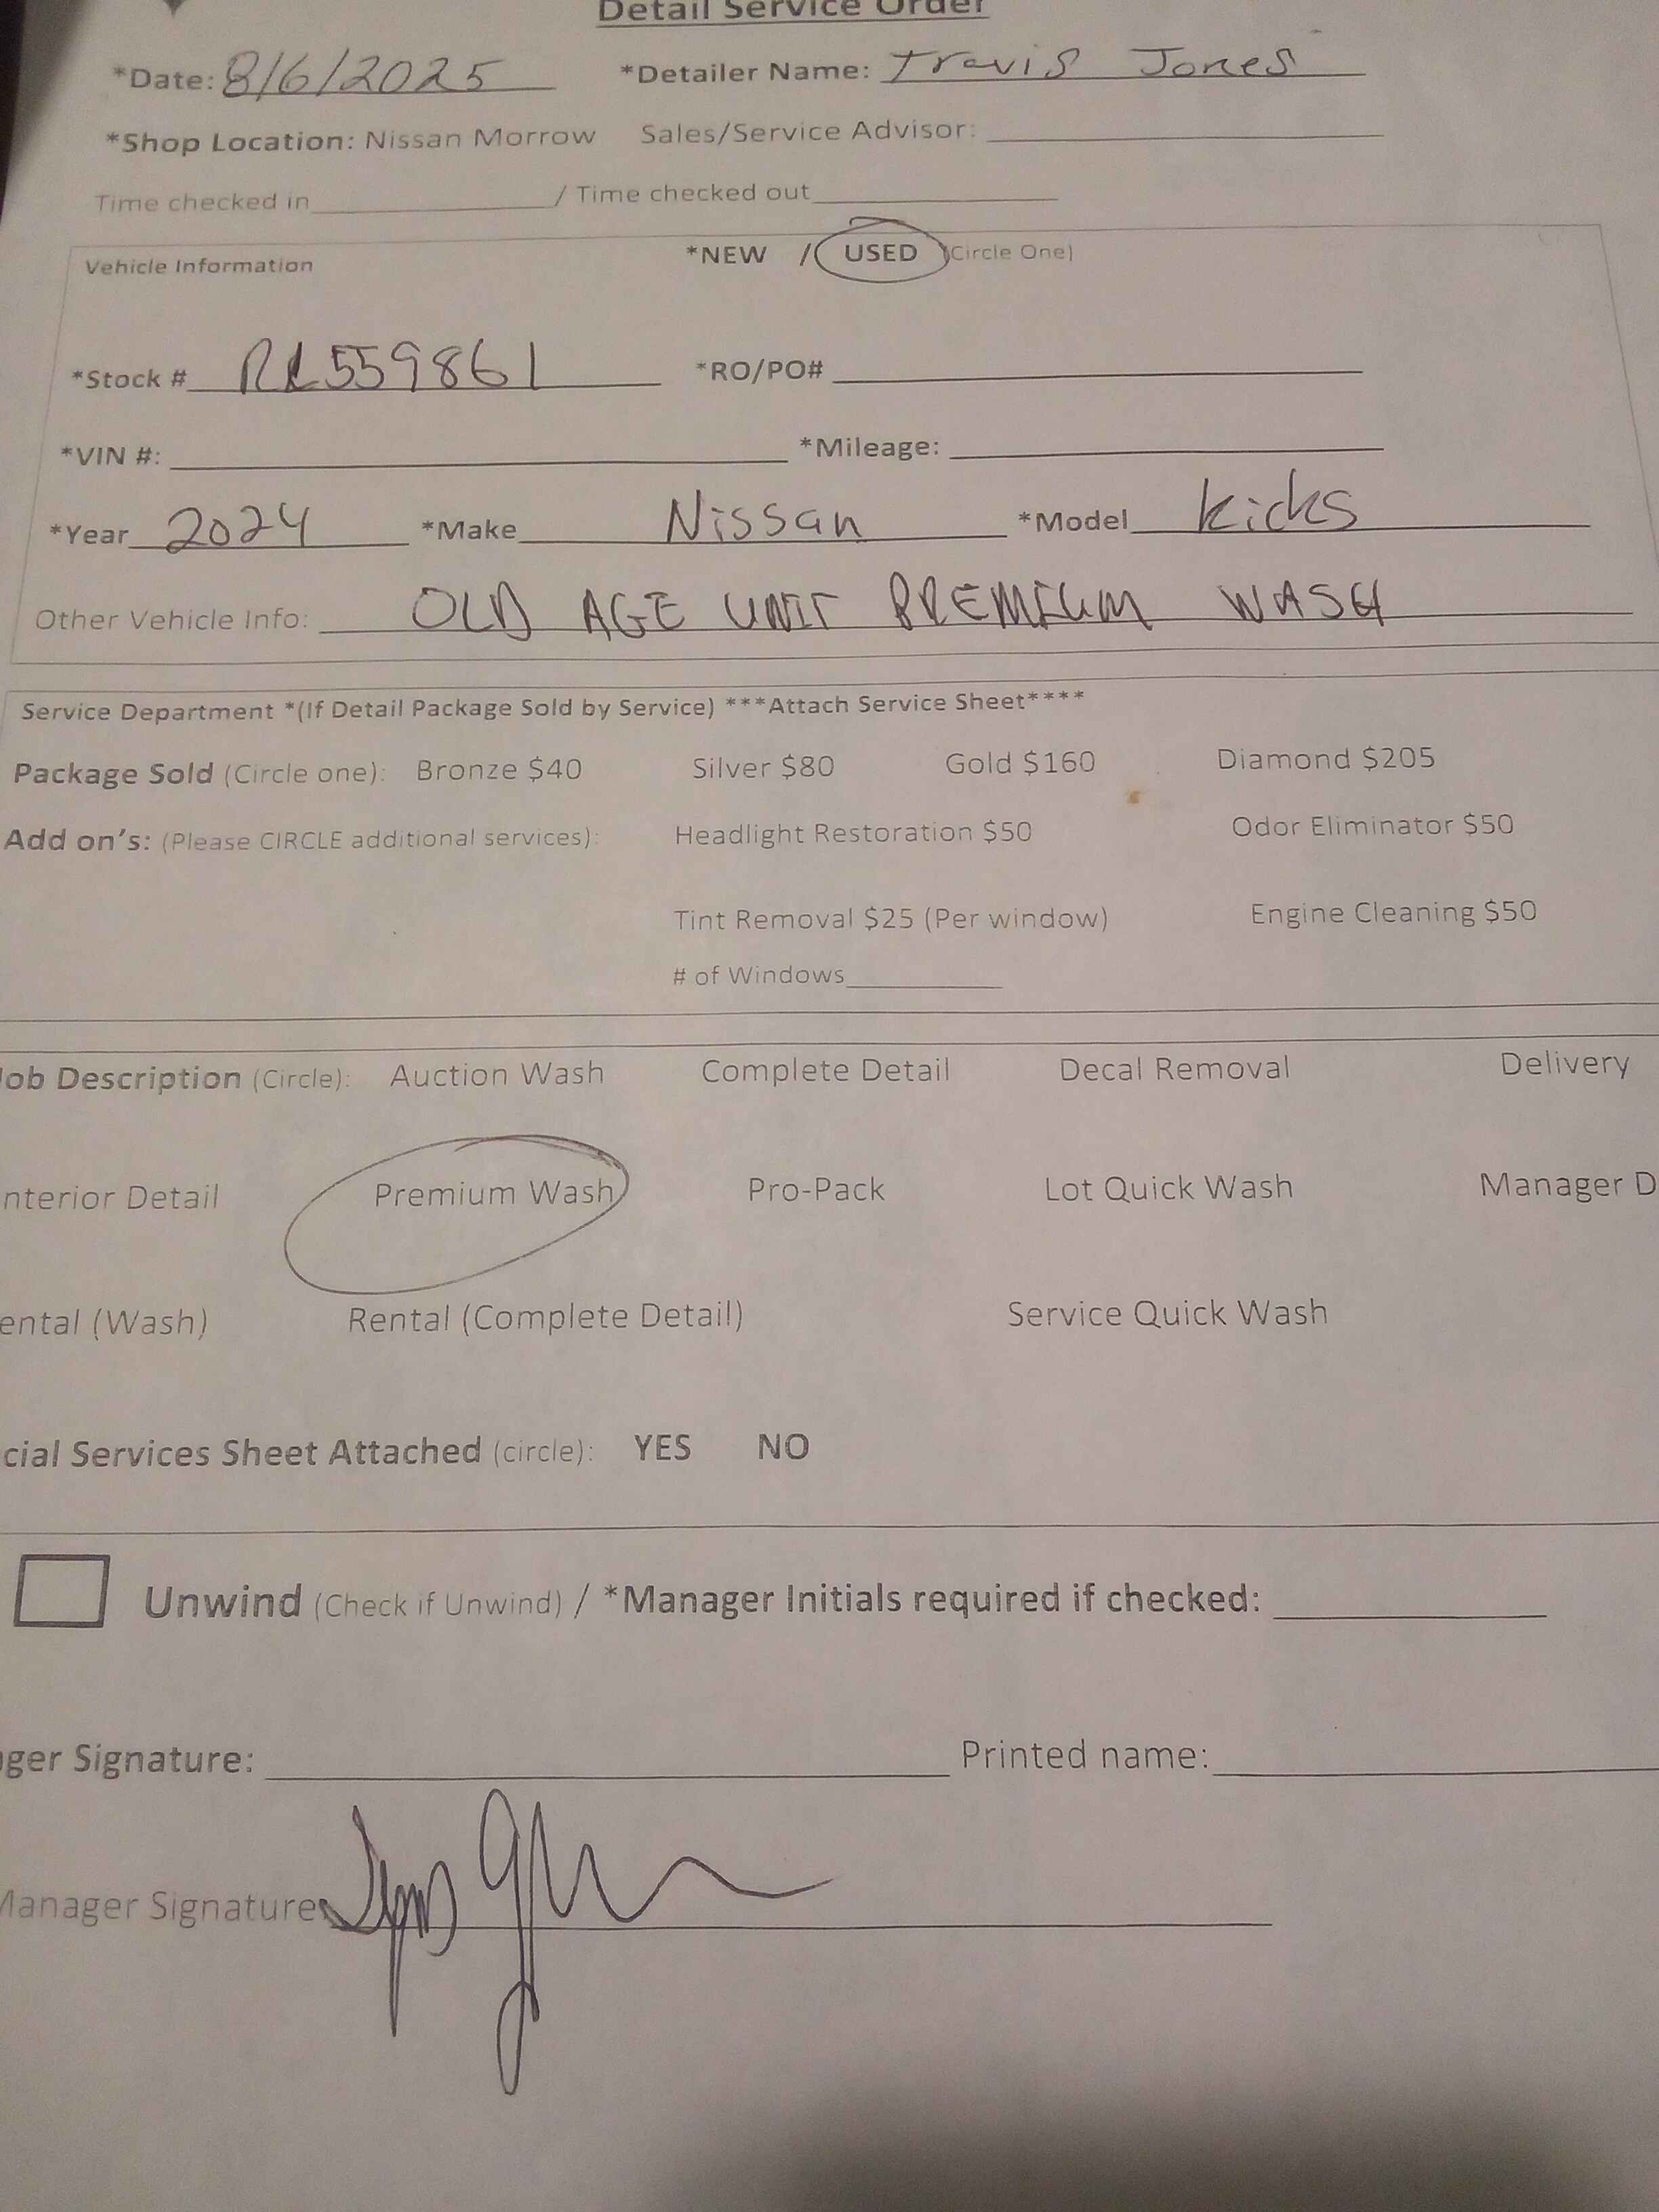 Detail Service Order
*Date: 8/6/2025 *Detailer Name: Travis Jones
*Shop Location: Nissan Morrow Sales/Service Advisor:
Time checked in / Time checked out
Vehicle Information *NEW / USED (Circle One)
*Stock # RL559861 *RO/PO#
*VIN #: *Mileage:
*Year 2024 *Make Nissan *Model Kicks
Other Vehicle Info: OLD AGE UNIT PREMIUM WASH
Service Department *(If Detail Package Sold by Service) ***Attach Service Sheet****
Package Sold (Circle one): Bronze $40 Silver $80 Gold $160 Diamond $205
Add on's: (Please CIRCLE additional services): Headlight Restoration $50 Odor Eliminator $50
Tint Removal $25 (Per window) Engine Cleaning $50
# of Windows
ob Description (Circle): Auction Wash Complete Detail Decal Removal Delivery
nterior Detail Premium Wash Pro-Pack Lot Quick Wash Manager D
ental (Wash) Rental (Complete Detail) Service Quick Wash
cial Services Sheet Attached (circle): YES NO
Unwind (Check if Unwind) / *Manager Initials required if checked:
ger Signature: Printed name:
Manager Signature